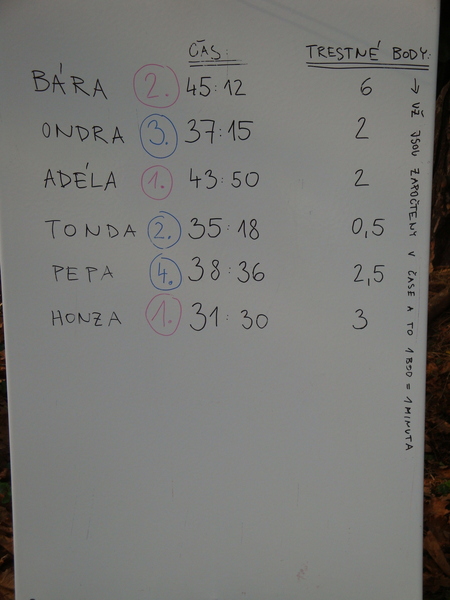 ČAS: TRESTNÉ BODY:
BÁRA 2. 45:12 6
ONDRA 3. 37:15 2
ADÉLA 1. 43:50 2
TONDA 2. 35:18 0,5
PEPA 4. 38:36 2,5
HONZA 1. 31:30 3
→ UŽ JSOU ZAPOČTENY V ČASE A TO 1 BOD = 1 MINUTA